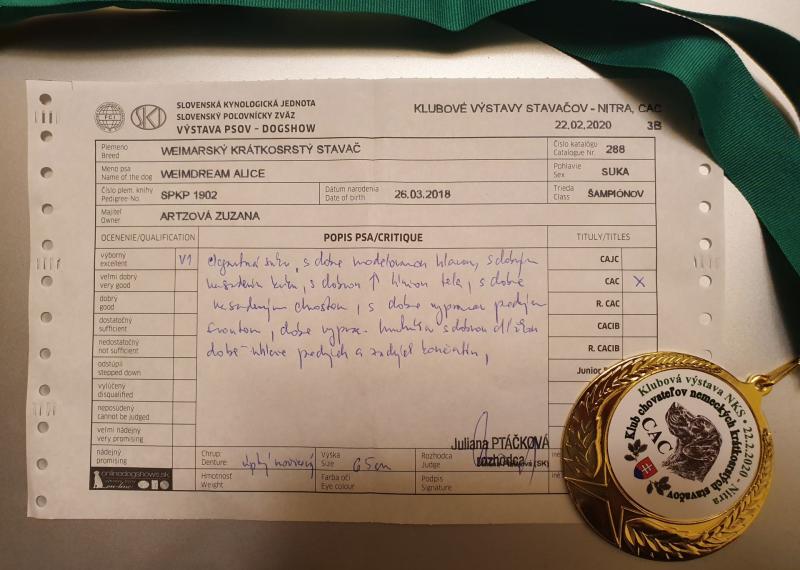 FCI
SKJ
SLOVENSKÁ KYNOLOGICKÁ JEDNOTA
SLOVENSKÝ POĽOVNÍCKY ZVÄZ
VÝSTAVA PSOV - DOGSHOW
KLUBOVÉ VÝSTAVY STAVAČOV - NITRA, CAC
22.02.2020 3B
Plemeno
Breed
WEIMARSKÝ KRÁTKOSRSTÝ STAVAČ
Číslo katalógu
Catalogue Nr.
288
Meno psa
Name of the dog
WEIMDREAM ALICE
Pohlavie
Sex
SUKA
Číslo plem. knihy
Pedigree-No.
SPKP 1902
Dátum narodenia
Date of birth
26.03.2018
Trieda
Class
ŠAMPIÓNOV
Majiteľ
Owner
ARTZOVÁ ZUZANA
OCENENIE/QUALIFICATION
POPIS PSA/CRITIQUE
TITULY/TITLES
výborný
excellent
V1
veľmi dobrý
very good
dobrý
good
dostatočný
sufficient
nedostatočný
not sufficient
odstúpil
stepped down
vylúčený
disqualified
neposúdený
cannot be judged
veľmi nádejný
very promising
nádejný
promising
s dobre modelovanou hlavou, s dobrým
s dobrou hlavou tela, s dobre
nasadeným chvostom, s dobre
frontom, dobre s dobrou
dobre predných a zadných končatín,
CAJC
CAC X
R. CAC
CACIB
R. CACIB
Junior
Chrup:
Denture:
Výška
Size
65 cm
Rozhodca
Judge
Juliana PTÁČKOVÁ
rozhodca
(SK)
Hmotnosť
Weight
Farba očí
Eye colour
Podpis
Signature
onlinedogshows.sk
Klubová výstava NKS • 22.2.2020 - Nitra
Klub chovateľov nemeckých krátkosrstých stavačov
CAC